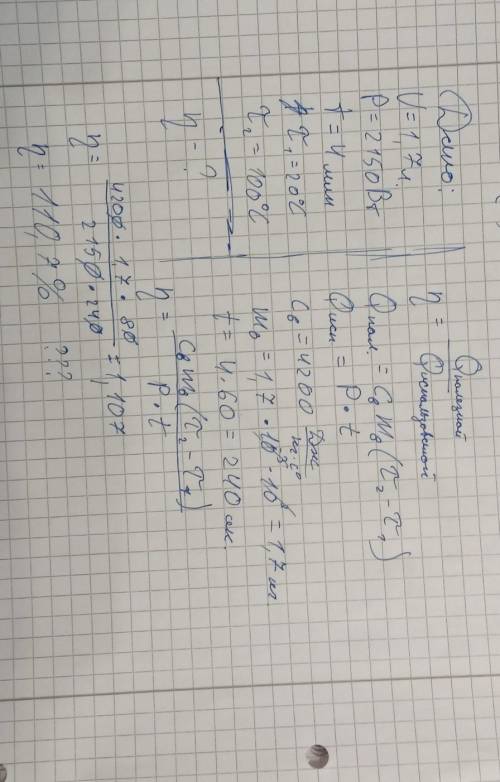 Дано:
V = 1,7 л.
P = 2150 Вт
t = 4 мин
τ₁ = 20°C
τ₂ = 100°C
η - ?
η = Qполезной / Qиспользованной
Qпол. = CвMв(τ₂ - τ₁)
Qисп = P·t
Cв = 4200 Дж / кг·C°
Mв = 1,7 · 10⁻³ · 10³ = 1,7 кг
t = 4·60 = 240 сек.
η = CвMв(τ₂ - τ₁) / P·t
η = 4200 · 1,7 · 80 / 2150 · 240 = 1,107
η = 110,7% ???